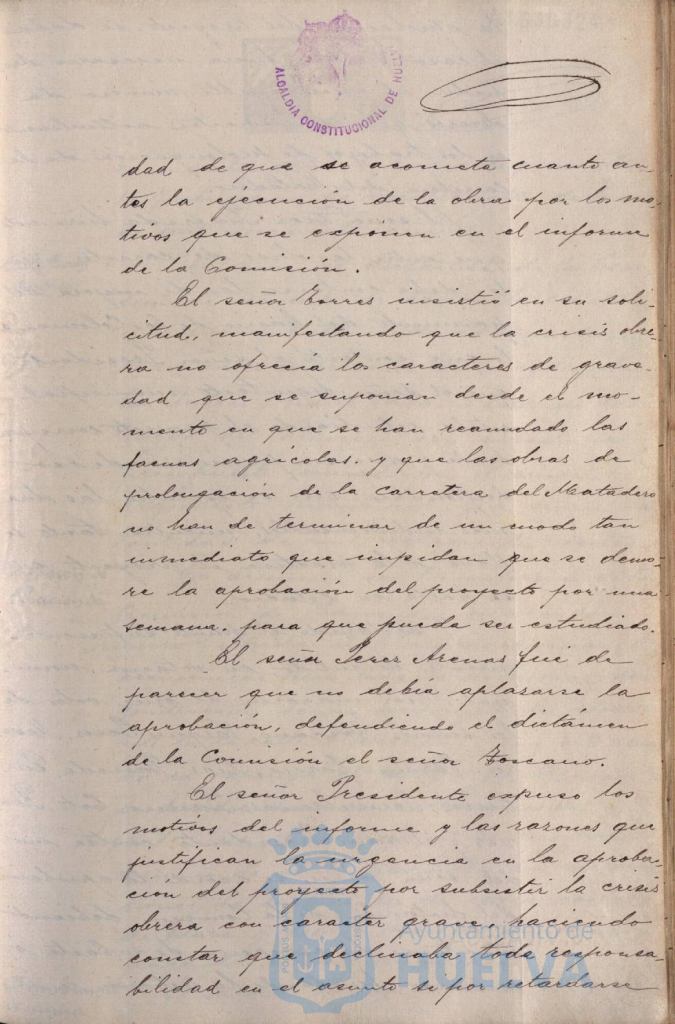 ALCALDIA CONSTITUCIONAL DE HUELVA
dad de que se acometa cuanto an-
tes la ejecución de la obra por los mo-
tivos que se exponen en el informe
de la Comisión.
El señor Torres insistió en su soli-
citud, manifestando que la crisis obre-
ra no ofrecia los caracteres de grave-
dad que se suponian desde el mo-
mento en que se han reanudado las
faenas agrícolas. y que las obras de
prolongación de la carretera del Matadero
no han de terminar de un modo tan
inmediato que impidan que se demo-
re la aprobación del proyecto por una
semana. para que pueda ser estudiado.
El señor Perez Arenas fué de
parecer que no debía aplazarse la
aprobación, defendiendo el dictámen
de la Comisión el señor Toscano.
El señor Presidente expuso los
motivos del informe y las razones que
justifican la urgencia en la aproba-
ción del proyecto por subsistir la crisis
obrera con caracter grave, haciendo
constar que declinaba toda responsa-
bilidad en el asunto si por retardarse
Ayuntamiento de
HUELVA